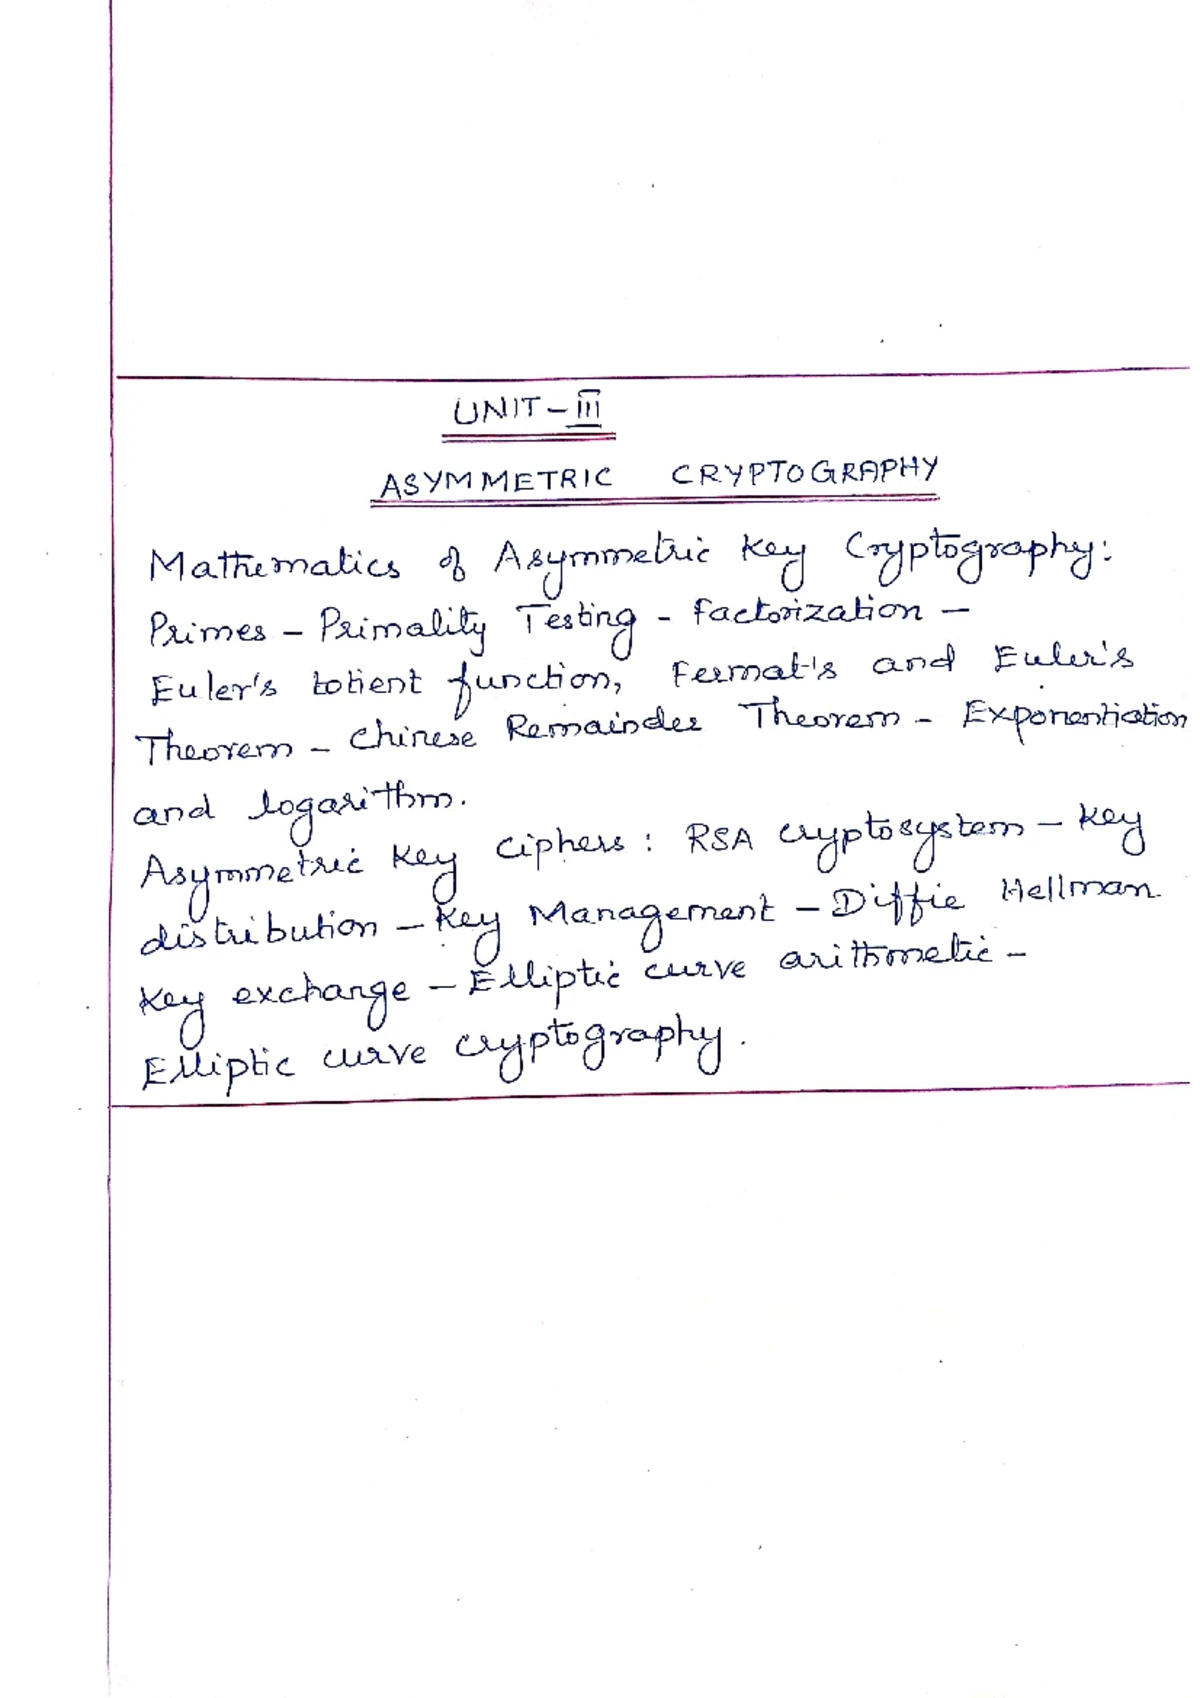 UNIT-III
ASYMMETRIC CRYPTOGRAPHY
Mathematics of Asymmetric Key Cryptography:
Primes - Primality Testing - Factorization -
Euler's totient function, Fermat's and Euler's
Theorem - Chinese Remainder Theorem - Exponentiation
and logarithm.
Asymmetric Key Ciphers: RSA cryptosystem - Key
distribution - Key Management - Diffie Hellman
Key exchange - Elliptic curve arithmetic -
Elliptic curve cryptography.